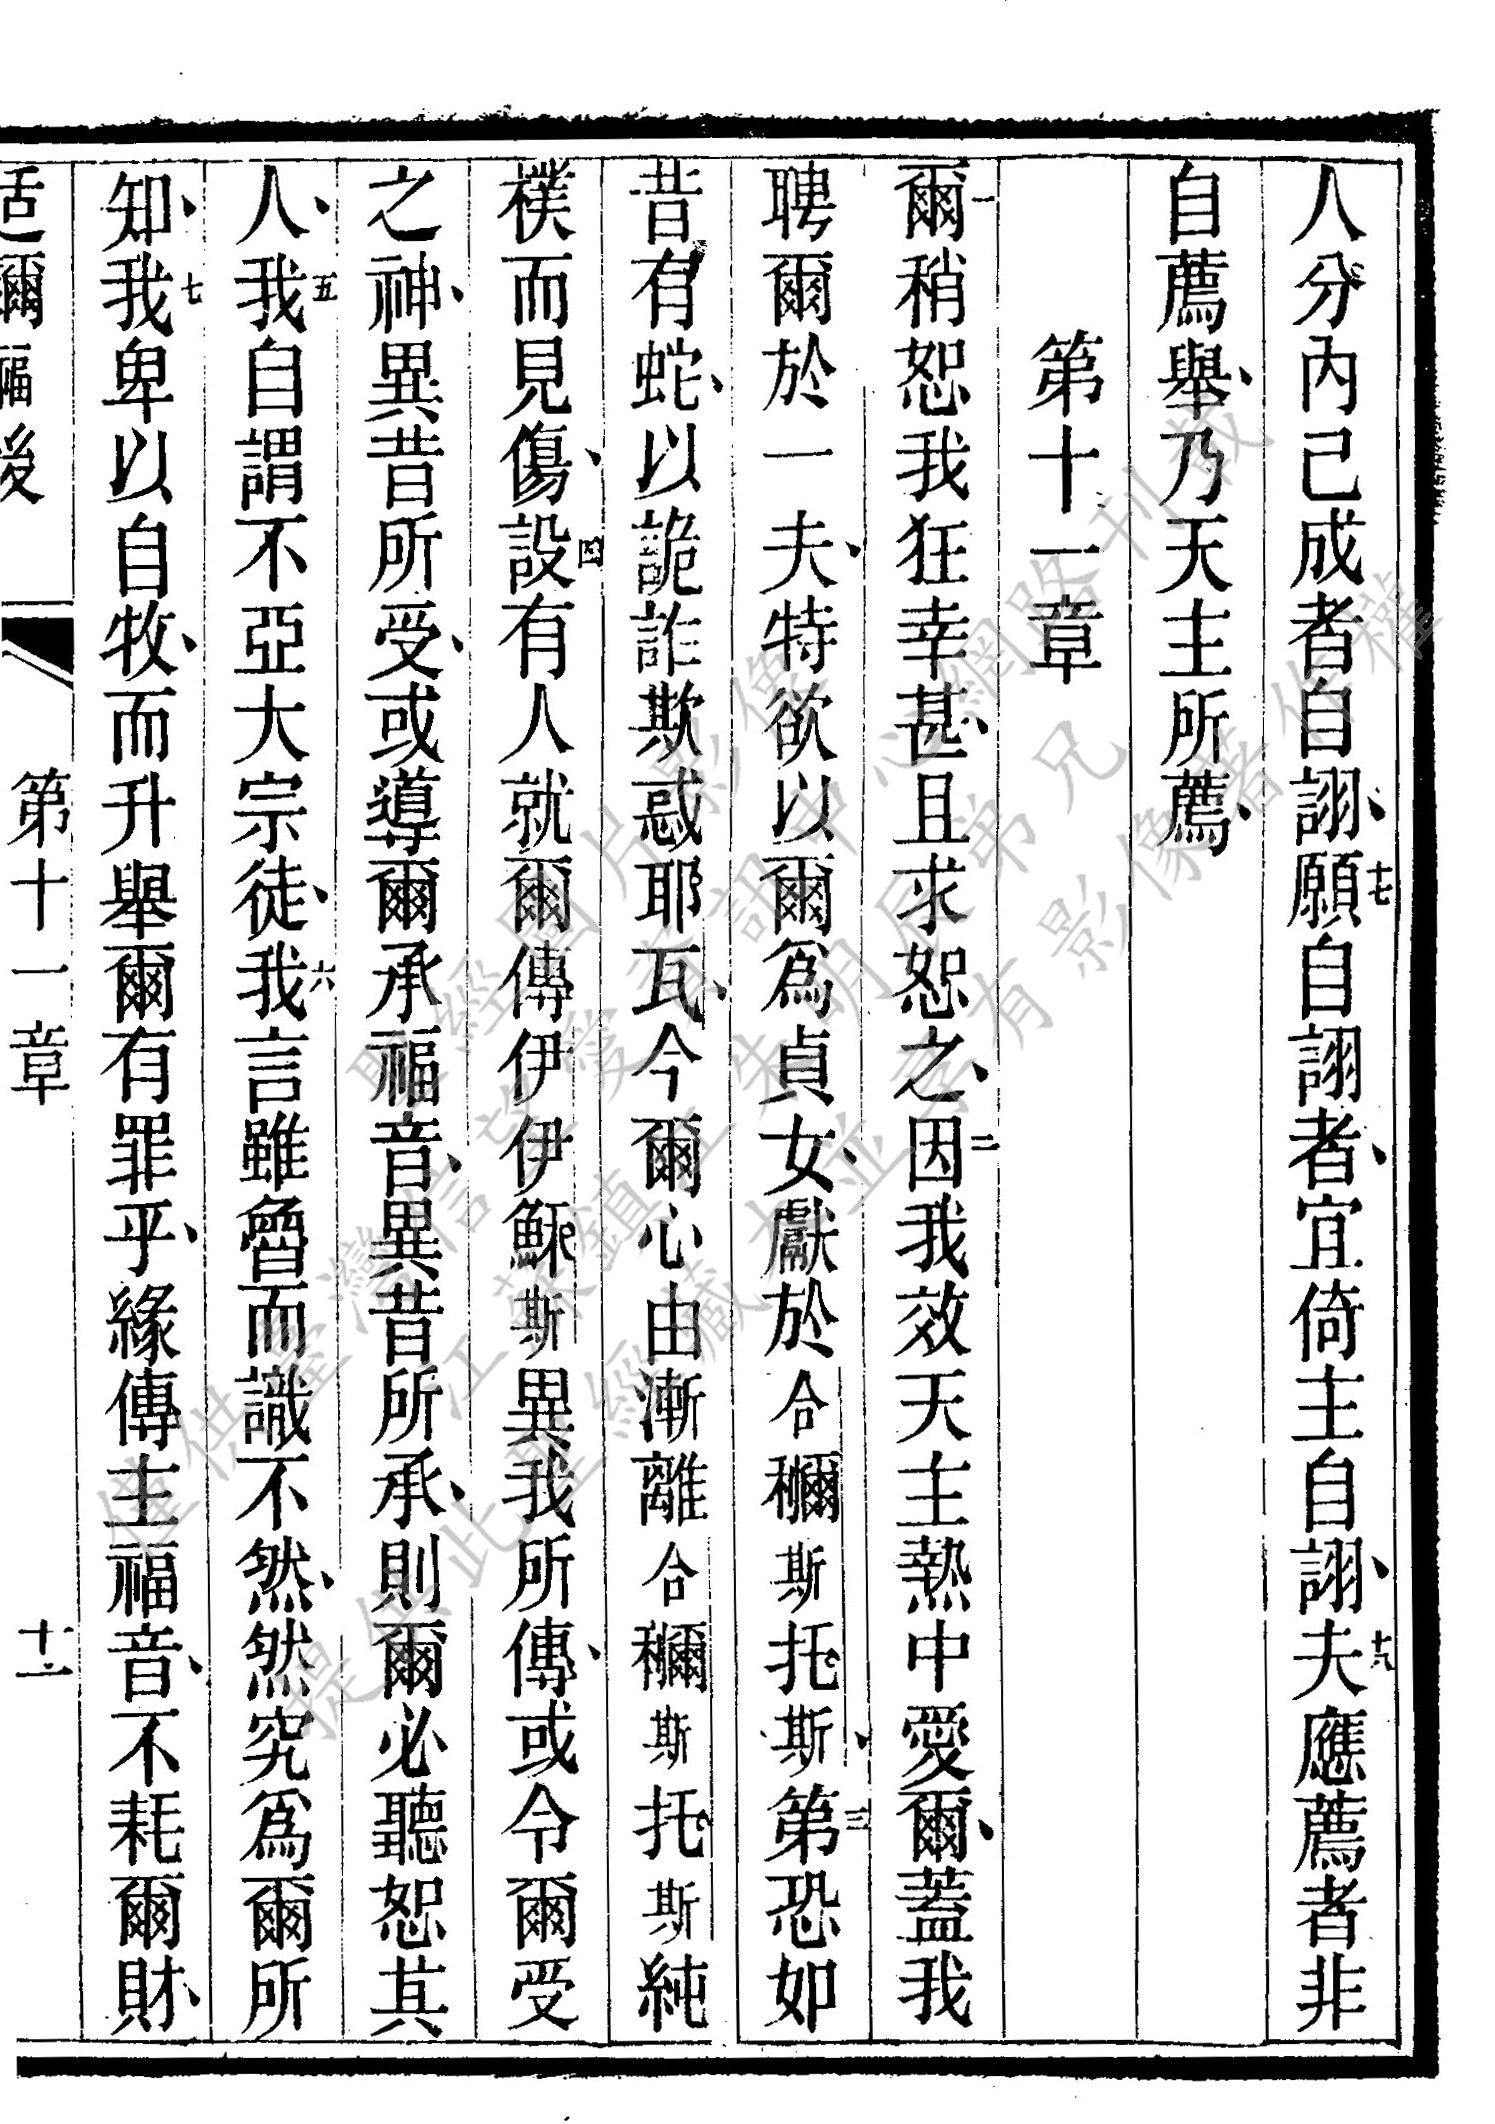 人分內已成者自詡、十七願自詡者、宜倚主自詡、十八夫應薦者非
自薦舉、乃天主所薦、
第十一章
一爾稍恕我狂幸甚、且求恕之、二因我效天主熱中愛爾、蓋我
聘爾於一夫、特欲以爾爲貞女、獻於合穪斯托斯、三第恐如
昔有蛇、以詭詐欺惑耶瓦、今爾心由漸離合穪斯托斯純
樸而見傷、四設有人就爾傳伊伊穌斯異我所傳、或令爾受
之神、異昔所受、或導爾承福音、異昔所承、則爾必聽恕其
人、五我自謂不亞大宗徒、六我言雖魯而識不然、然究爲爾所
知、七我卑以自牧、而升舉爾有罪乎、緣傳主福音、不耗爾財、
适爾福後 第十一章 十一
僅供臺灣信望愛資訊中心網路刊載
聖經圖片影像
江蘇鎮江朱明辰弟兄
提供此聖經藏本並享有影像著作權